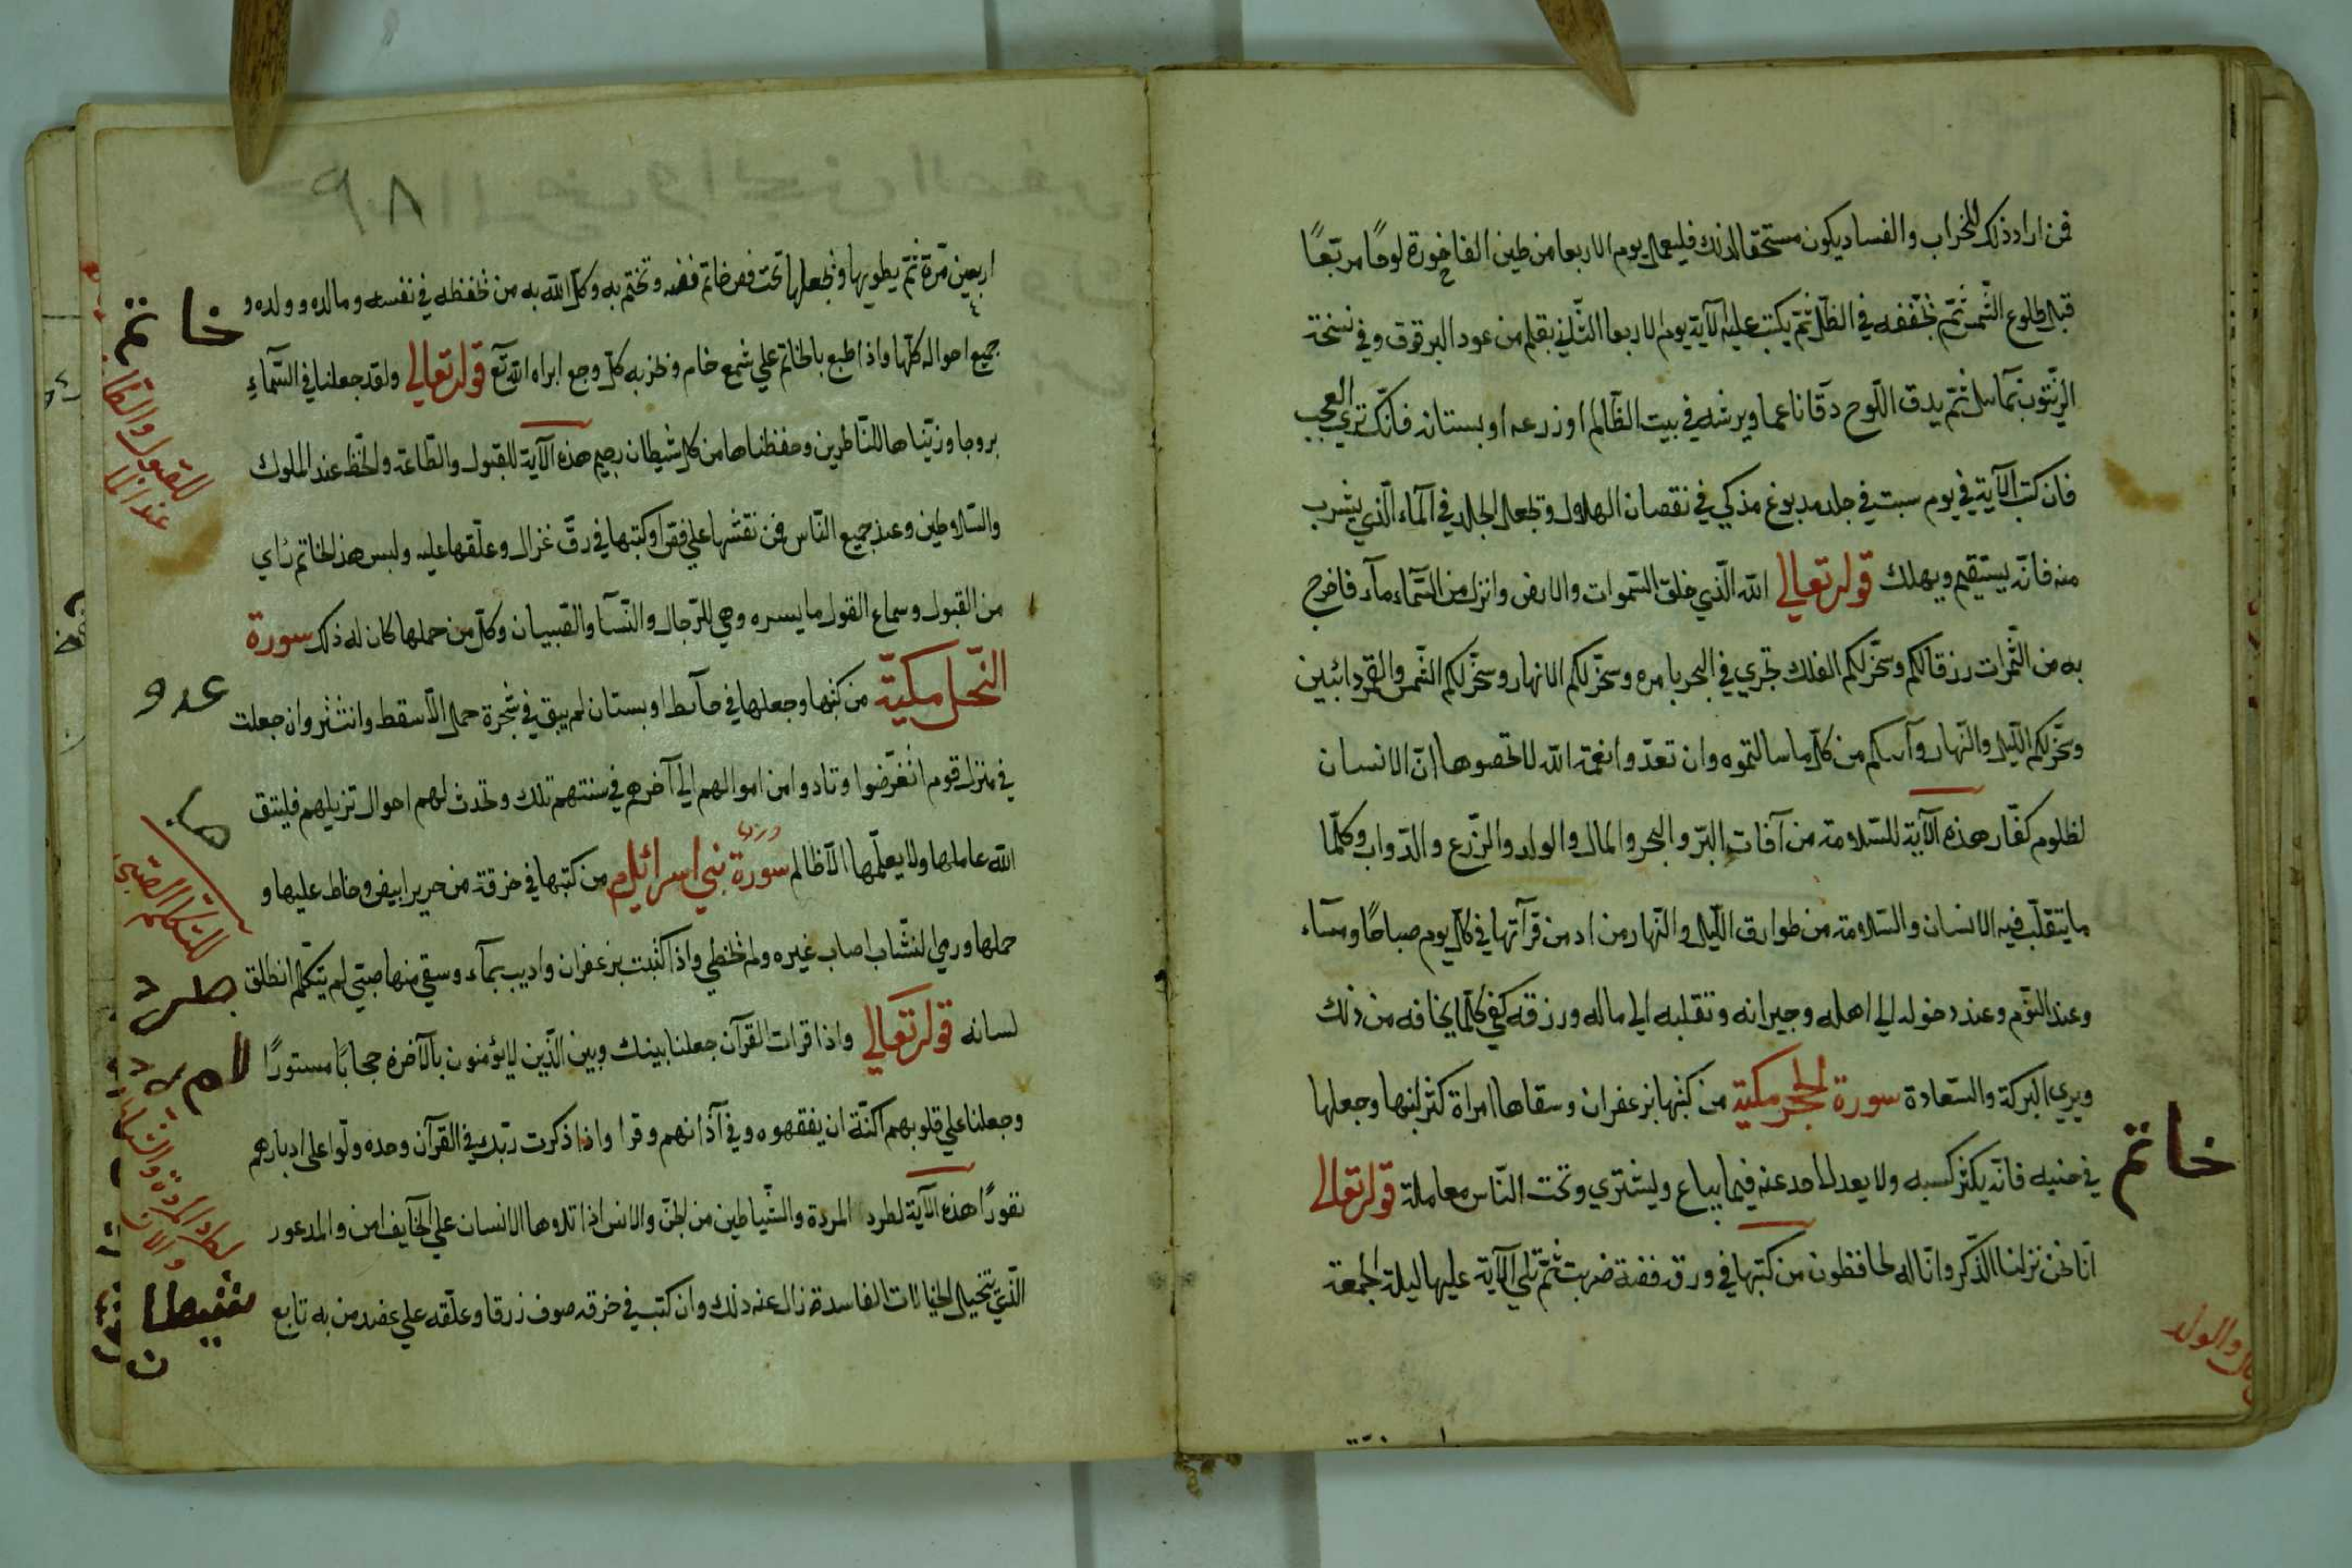 فمن اراد ذلك للخراب والفساد يكون مستحقا لذلك فليعمل يوم الاربعا من طين الفاخورة لوحًا مربّعًا
قبل طلوع الشّمس ثمّ يخففه في الظّل ثمّ يكتب عليه الآية يوم الاربعا الثّاني بقلم من عود البرقوق وفي نسخة
الزّيتون ثمّ يدق اللّوح دقّا ناعما ويرشه في بيت الظّالم او زرعه او بستانه فانّك تري العجب
فان كتب الآية في يوم سبت في جلد مدبوغ مذكي في نقصان الهلال وتجعل الجلد في المآء الّذي يشرب
منه فانّه يستقيم ويهلك قوله تعالي الله الّذي خلق السّموات والارض وانزل من السّمآء مآء فاخرج
به من الثّمرات رزقا لكم وسخّر لكم الفلك تجري في البحر بامره وسخّر لكم الانهار وسخّر لكم الشّمس والقمر دائبين
وسخّر لكم اللّيل والنّهار وآتيكم من كلّ ما سالتموه وان تعدّوا نعمة الله لا تحصوها انّ الانسان
لظلوم كفّار هذه الآية للسّلامة من آفات البرّ والبحر والمال والولد والزّرع والدّواب وكلّما
ما يتقلّب فيه الانسان والسّلامة من طوارق اللّيل والنّهار من ادمن قرآتها في كلّ يوم صباحًا ومسآء
وعند النّوم وعند دخوله الي اهله وجيرانه وتقلبه الي ماله ورزقه كفي كلّما يخافه من ذلك
ويري البركة والسّعادة سورة الحجر مكية من كتبها بزعفران وسقاها امراة كثر لبنها وجعلها
في جنبه فانّه يكثر كسبه ولا يعدل احد عنه فيما يباع ويشتري وتحت النّاس معاملة قوله تعالي
انّا نحن نزلنا الذّكر وانّا له لحافظون من كتبها في ورق فضة ضربت ثمّ تلي الآية عليها ليلة الجمعة
خاتم
والولد
٨٩
اربعين مرّة ثمّ يطويها وتجعلها تحت فص خاتم فضه وتختم به وكل الله به من يحفظه في نفسه وماله وولده و
جميع احواله كلّها واذا طبع بالخاتم علي شمع خام وبخر به كلّ وجع ابراه الله تعّ قوله تعالي ولقد جعلنا في السّمآء
بروجا وزيّنّاها للنّاظرين وحفظناها من كل شيطان رجيم هذه الآية للقبول والطّاعة والحظّ عند الملوك
والسّلاطين وعند جميع النّاس فمن نقشها علي فص او كتبها في رقّ غزال وعلّقها عليه ولبس هذا الخاتم راي
من القبول وسماع القول ما يسره وهي للرّجال والنّسآ والصّبيان وكلّ من حملها كان له ذلك سورة
النّحل مكيّة من كتبها وجعلها في حآيط او بستان لم يبق في شجرة حمل الّا سقط وانتثر وان جعلت
في منزل قوم انغرضوا وتادوا من اموالهم الي آخرهم في سنتهم تلك وتحدث لهم احوال تزيلهم فليتق
الله عاملها ولا يعلّمها الّا ظالم سورة بني اسرائيل من كتبها في خرقة من حرير ابيض وخاط عليها و
حملها ورمي النشّاب اصاب غيره ولم يخطي واذا كتبت بزعفران واديب بمآء وسقي منها صبيّ لم يتكلّم انطلق
لسانه قوله تعالي واذا قرات القرآن جعلنا بينك وبين الّذين لا يؤمنون بالآخرة حجابًا مستورًا
وجعلنا علي قلوبهم اكنّة ان يفقهوه وفي آذانهم وقرا واذا ذكرت ربّك في القرآن وحده ولّوا علي ادبارهم
نفورًا هذه الآية لطرد المردة والشّياطين من الجنّ والانس اذا تلاها الانسان علي الخآيف امن والمدعور
الّذي تتخيل الخيالات الفاسدة زال عنه ذلك وان كتب في خرقه صوف زرقا وعلّقه علي عضد من به تابع
خاتم
للقبول
عدو
للتكلم الصّبي
لطرد المردة